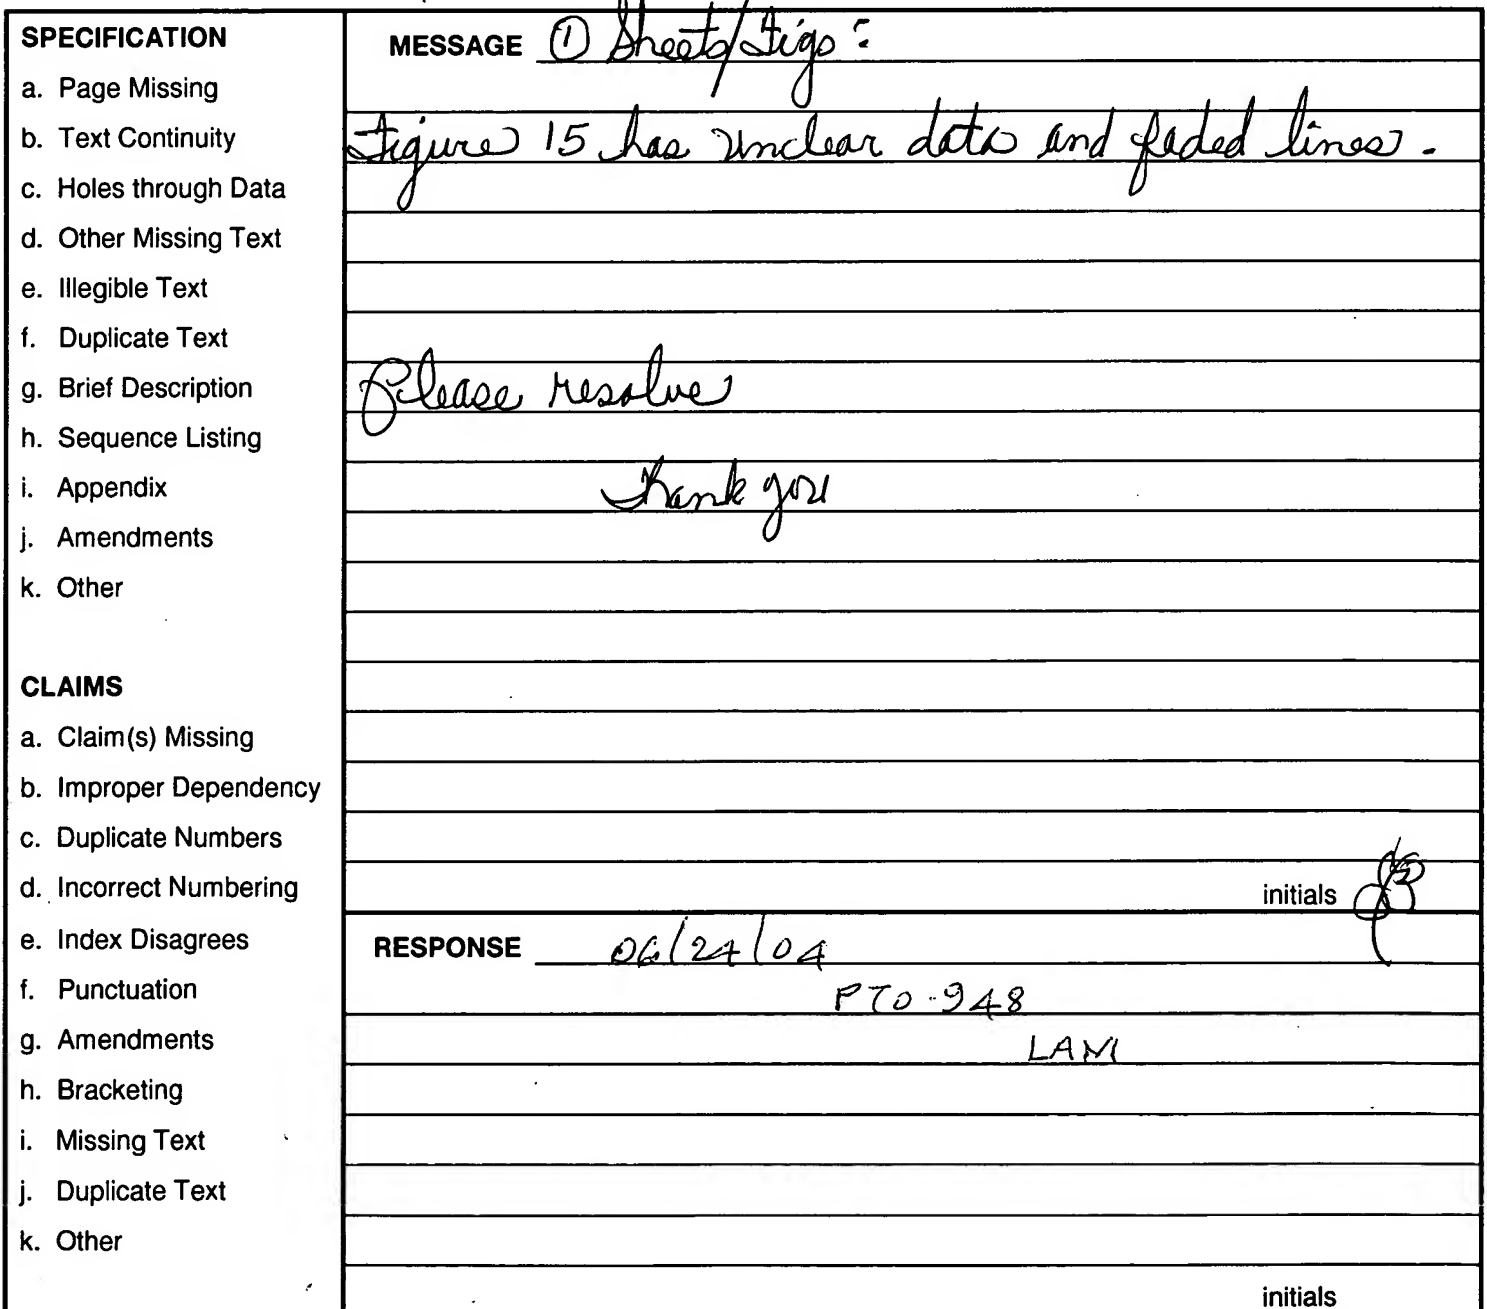 SPECIFICATION
a. Page Missing
b. Text Continuity
c. Holes through Data
d. Other Missing Text
e. Illegible Text
f. Duplicate Text
g. Brief Description
h. Sequence Listing
i. Appendix
j. Amendments
k. Other
CLAIMS
a. Claim(s) Missing
b. Improper Dependency
c. Duplicate Numbers
d. Incorrect Numbering
e. Index Disagrees
f. Punctuation
g. Amendments
h. Bracketing
i. Missing Text
j. Duplicate Text
k. Other
MESSAGE ① Sheets/Figs:
Figure 15 has unclear data and faded lines.
Please resolve
Thank you
initials
RESPONSE 06/24/04
PTO-948
LAM
initials